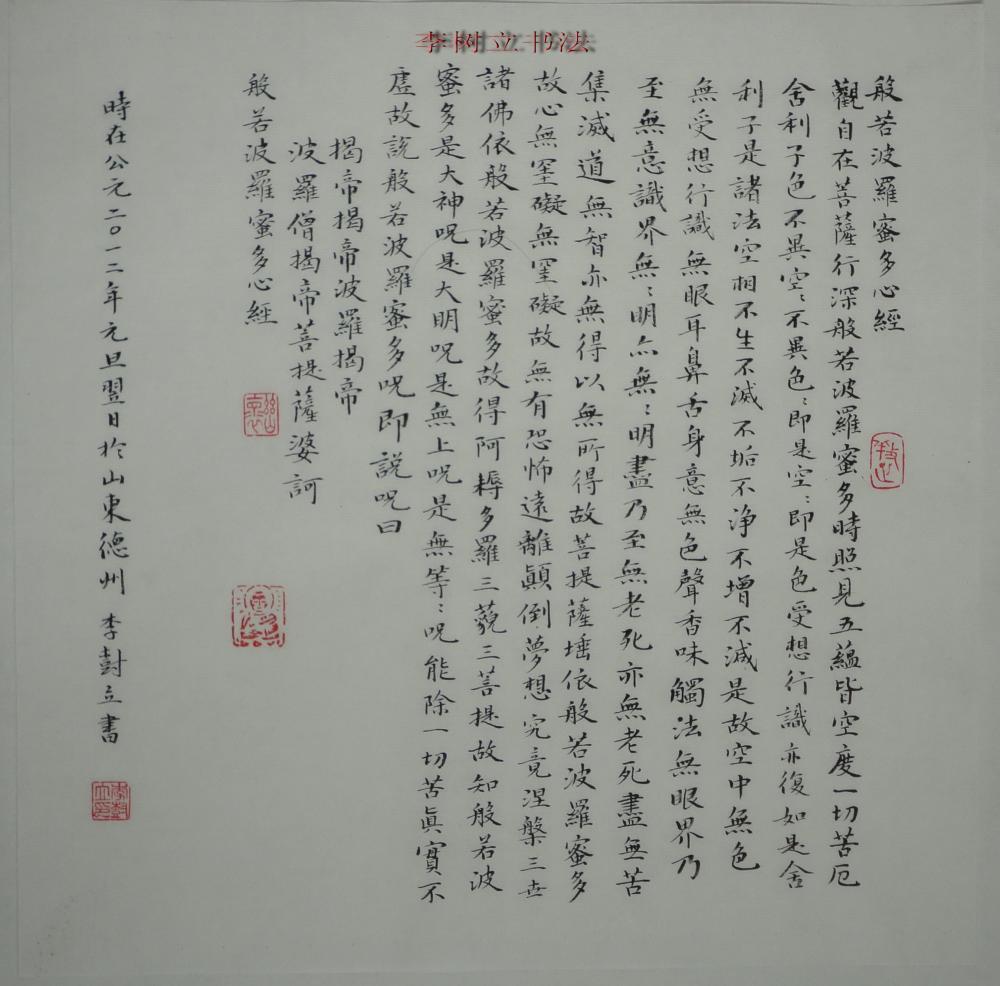 李树立书法
般若波羅蜜多心經
觀自在菩薩行深般若波羅蜜多時照見五蘊皆空度一切苦厄
舍利子色不異空〻不異色〻即是空〻即是色受想行識亦復如是舍
利子是諸法空相不生不滅不垢不净不增不減是故空中無色
無受想行識無眼耳鼻舌身意無色聲香味觸法無眼界乃
至無意識界無〻明亦無〻明盡乃至無老死亦無老死盡無苦
集滅道無智亦無得以無所得故菩提薩埵依般若波羅蜜多
故心無罣礙無罣礙故無有恐怖遠離顛倒夢想究竟涅槃三世
諸佛依般若波羅蜜多故得阿耨多羅三藐三菩提故知般若波
蜜多是大神呪是大明呪是無上呪是無等〻呪能除一切苦真實不
虛故說般若波羅蜜多呪即說呪曰
揭帝揭帝波羅揭帝
波羅僧揭帝菩提薩婆訶
般若波羅蜜多心經
時在公元二〇一二年元旦翌日於山東德州 李尌立書